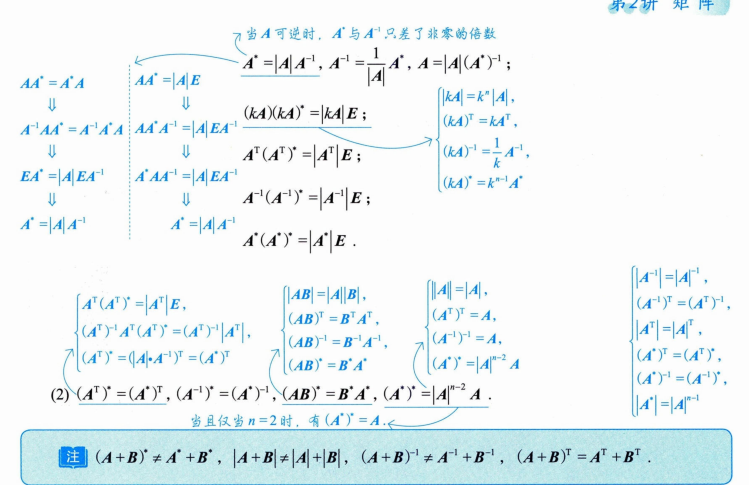 第2讲 矩阵
当A可逆时，A*与A⁻¹只差了非零的倍数
A* = |A|A⁻¹, A⁻¹ = 1/|A| A*, A = |A|(A*)⁻¹；
(kA)(kA)* = |kA|E；
Aᵀ(Aᵀ)* = |Aᵀ|E；
A⁻¹(A⁻¹)* = |A⁻¹|E；
A*(A*)* = |A*|E．
AA* = A*A
⇓
A⁻¹AA* = A⁻¹A*A
⇓
EA* = |A|EA⁻¹
⇓
A* = |A|A⁻¹
AA* = |A|E
⇓
AA*A⁻¹ = |A|EA⁻¹
⇓
A*AA⁻¹ = |A|EA⁻¹
⇓
A* = |A|A⁻¹
|kA| = kⁿ|A|,
(kA)ᵀ = kAᵀ,
(kA)⁻¹ = 1/k A⁻¹,
(kA)* = kⁿ⁻¹A*
Aᵀ(Aᵀ)* = |Aᵀ|E,
(Aᵀ)⁻¹Aᵀ(Aᵀ)* = (Aᵀ)⁻¹|Aᵀ|,
(Aᵀ)* = (|A|•A⁻¹)ᵀ = (A*)ᵀ
|AB| = |A||B|,
(AB)ᵀ = BᵀAᵀ,
(AB)⁻¹ = B⁻¹A⁻¹,
(AB)* = B*A*
||A|| = |A|,
(Aᵀ)ᵀ = A,
(A⁻¹)⁻¹ = A,
(A*)* = |A|ⁿ⁻² A
|A⁻¹| = |A|⁻¹,
(A⁻¹)ᵀ = (Aᵀ)⁻¹,
|Aᵀ| = |A|ᵀ,
(A*)ᵀ = (Aᵀ)*,
(A*)⁻¹ = (A⁻¹)*,
|A*| = |A|ⁿ⁻¹
(2) (Aᵀ)* = (A*)ᵀ, (A⁻¹)* = (A*)⁻¹, (AB)* = B*A*, (A*)* = |A|ⁿ⁻² A．
当且仅当n=2时，有(A*)* = A．
注 (A+B)* ≠ A* + B*，|A+B| ≠ |A|+|B|，(A+B)⁻¹ ≠ A⁻¹ + B⁻¹，(A+B)ᵀ = Aᵀ + Bᵀ．